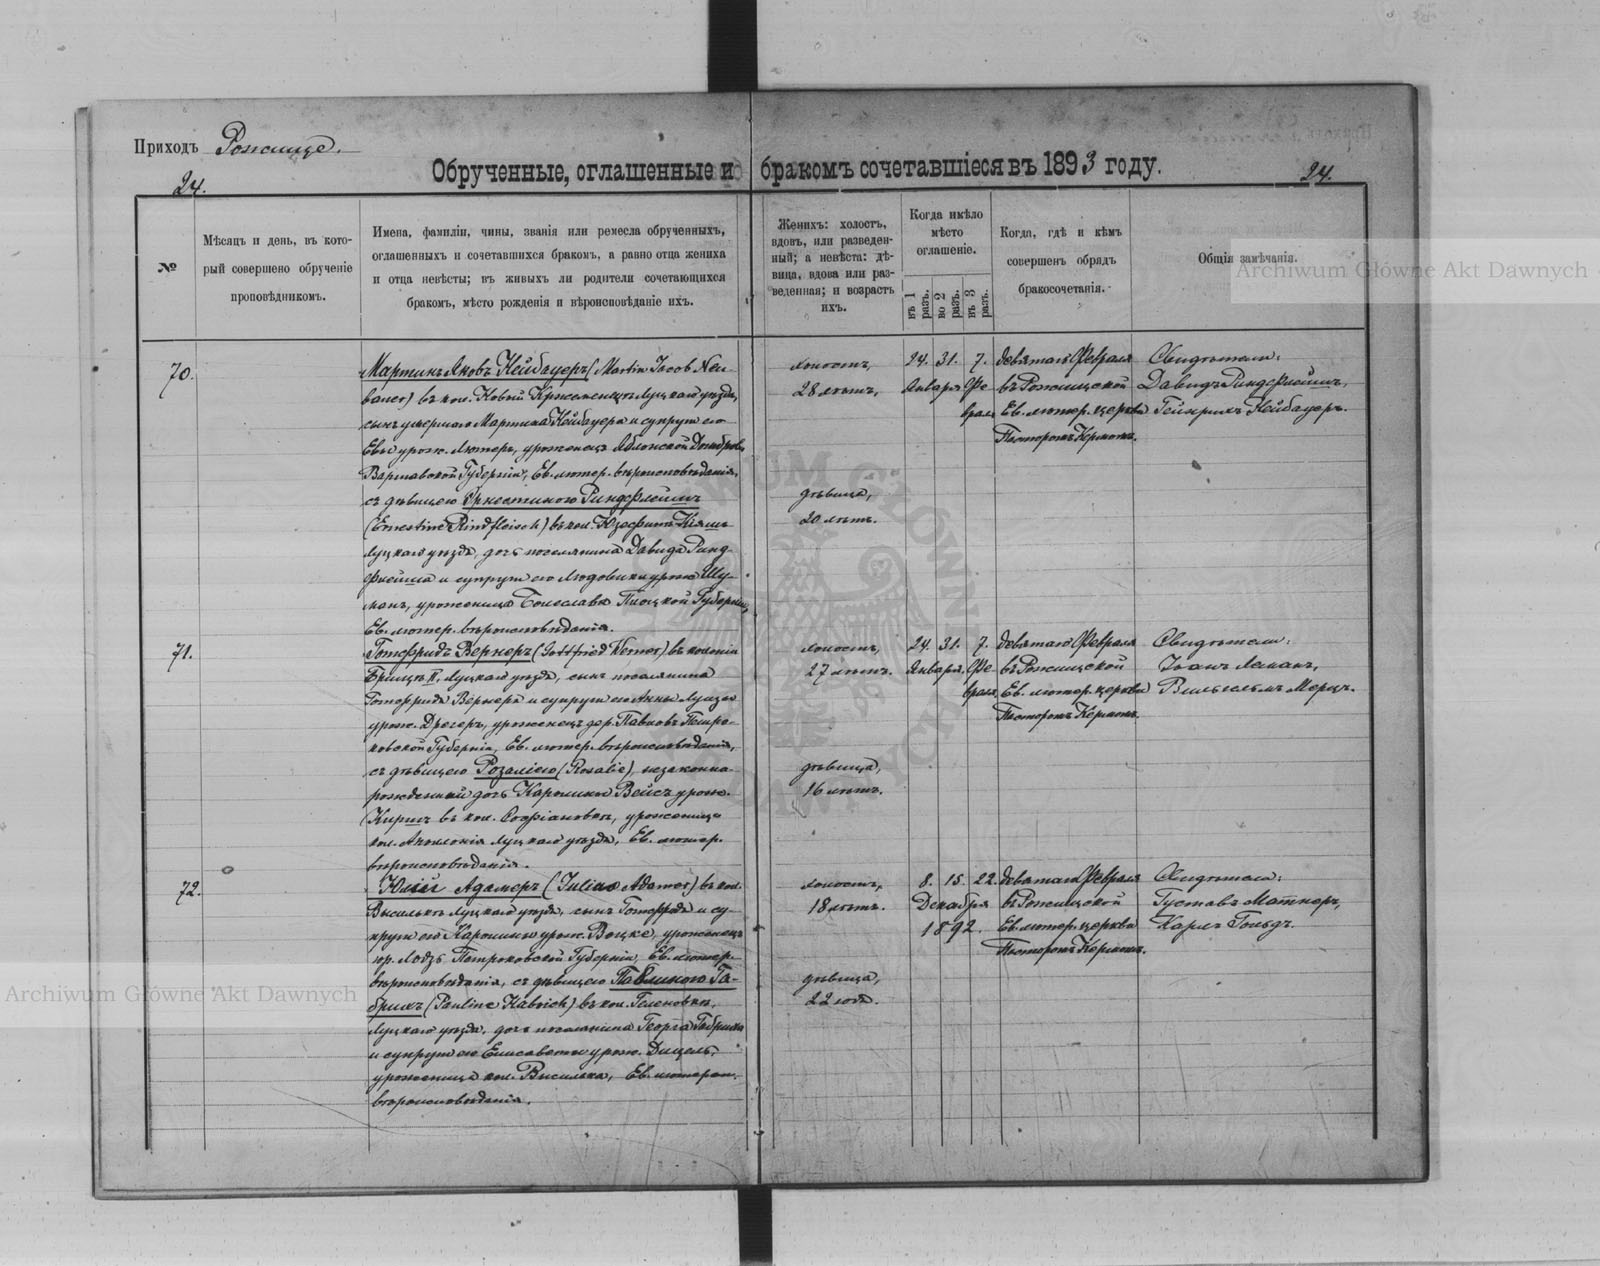 Приходъ Рожище.
Обрученные, оглашенные и бракомъ сочетавшіеся въ 1893 году.
24.
24.
№
Мѣсяцъ и день, въ кото-
рый совершено обрученіе
проповѣдникомъ.
Имена, фамиліи, чины, званія или ремесла обрученныхъ,
оглашенныхъ и сочетавшихся бракомъ, а равно отца жениха
и отца невѣсты; въ живыхъ ли родители сочетающихся
бракомъ, мѣсто рожденія и вѣроисповѣданіе ихъ.
Женихъ: холостъ,
вдовъ, или разведен-
ный; а невѣста: дѣ-
вица, вдова или раз-
веденная; и возрастъ
ихъ.
Когда имѣло
мѣсто
оглашеніе.
въ 1 разъ.
во 2 разъ.
въ 3 разъ.
Когда, гдѣ и кѣмъ
совершенъ обрядъ
бракосочетанія.
Общія замѣчанія.
70.
Мартинъ Яковъ Нейбауеръ (Martin Jacob Neu-
bauer) въ кол. Новый Кржеменецъ Луцкаго уѣзда,
сынъ умершаго Мартина Нейбауера и супруги его
Евы урож. Лютеръ, уроженецъ Яблонской Домбровы
Варшавской Губерніи, Ев. лютер. вѣроисповѣданія,
съ дѣвицею Эрнестиною Риндфлейшъ
(Ernestine Rindfleisch) въ кол. Юзефинъ
Луцкаго уѣзда, дочь поселянина Давида Ринд-
флейша и супруги его Людовики урож. Шу-
манъ, уроженица Болеслава Плоцкой Губерніи,
Ев. лютер. вѣроисповѣданія.
холостъ,
28 лѣтъ,
дѣвица,
20 лѣтъ.
24. 31. 7.
Января Фе-
враля
девятаго Февраля
въ Рожищской
Ев. лютер. церкви
Пасторомъ Керномъ.
Свидѣтели:
Давидъ Риндфлейшъ,
Гейнрихъ Нейбауеръ.
71.
Готфридъ Вернеръ (Gottfried Werner) въ колоніи
Брищъ II. Луцкаго уѣзда, сынъ поселянина
Готфрида Вернера и супруги его Анны Луизы
урож. Дрегеръ, уроженецъ дер. Павловъ Петро-
ковской Губерніи, Ев. лютер. вѣроисповѣданія,
съ дѣвицею Розаліею (Rosalie), незаконно-
рожденный дочь Каролины Вейсъ урож.
Киршъ въ кол. Софіановка, уроженица
кол. Аполонія Луцкаго уѣзда, Ев. лютер.
вѣроисповѣданія.
холостъ,
27 лѣтъ.
дѣвица,
16 лѣтъ.
24. 31. 7.
Января. Фе-
враля
девятаго Февраля
въ Рожищской
Ев. лютер. церкви
Пасторомъ Керномъ.
Свидѣтели:
Іоанъ Леманъ,
Вильгельмъ Мерцъ.
72.
Юлій Адамеръ (Julius Adamer) въ кол.
Высилькъ Луцкаго уѣзда, сынъ Готфрида и су-
пруги его Каролины урож. Воцке, уроженецъ
гор. Лодзь Петроковской Губерніи, Ев. лютер.
вѣроисповѣданія, съ дѣвицею Павлиною Га-
брихъ (Pauline Habrich) въ кол. Геленовка,
Луцкаго уѣзда, дочь поселянина Георга Габриха
и супруги его Елисаветы урож. Дицель,
уроженица кол. Висилька, Ев. лютеран.
вѣроисповѣданія.
холостъ,
18 лѣтъ.
дѣвица,
22 года.
8. 15. 22.
Декабря
1892.
девятаго Февраля
въ Рожищской
Ев. лютер. церкви
Пасторомъ Керномъ.
Свидѣтели:
Густавъ Матнеръ,
Карлъ Гольдъ.
Archiwum Główne Akt Dawnych
Archiwum Główne Akt Dawnych